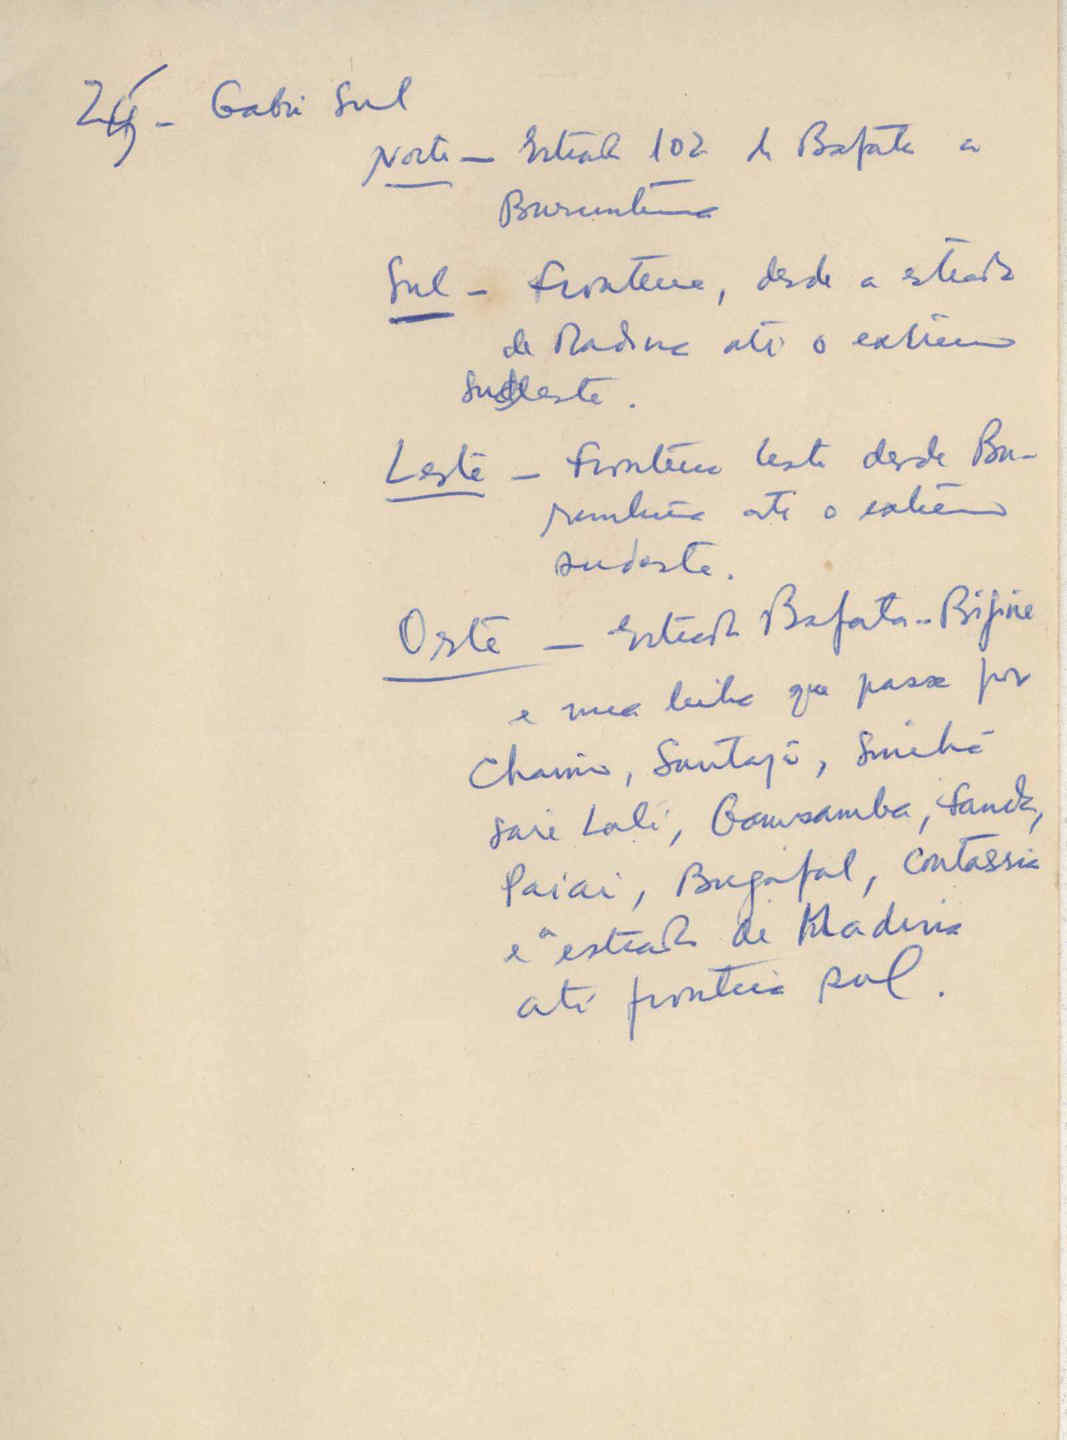 Gabú Sul
Norte — Estrada 102 de Bafatá a
Buruntuma
Sul — Fronteira, desde a estrada
de Madina até o extremo
sudeste.
Leste — Fronteira leste desde Bu-
runtuma até o extremo
sudeste.
Oeste — Estrada Bafatá-Bijine
e uma linha que passa por
Chamio, Santajo,
Sare Lali, Gamsamba, Sanda,
Paiai, Bugafal, Contassia
e a estrada de Madina
até fronteira sul.